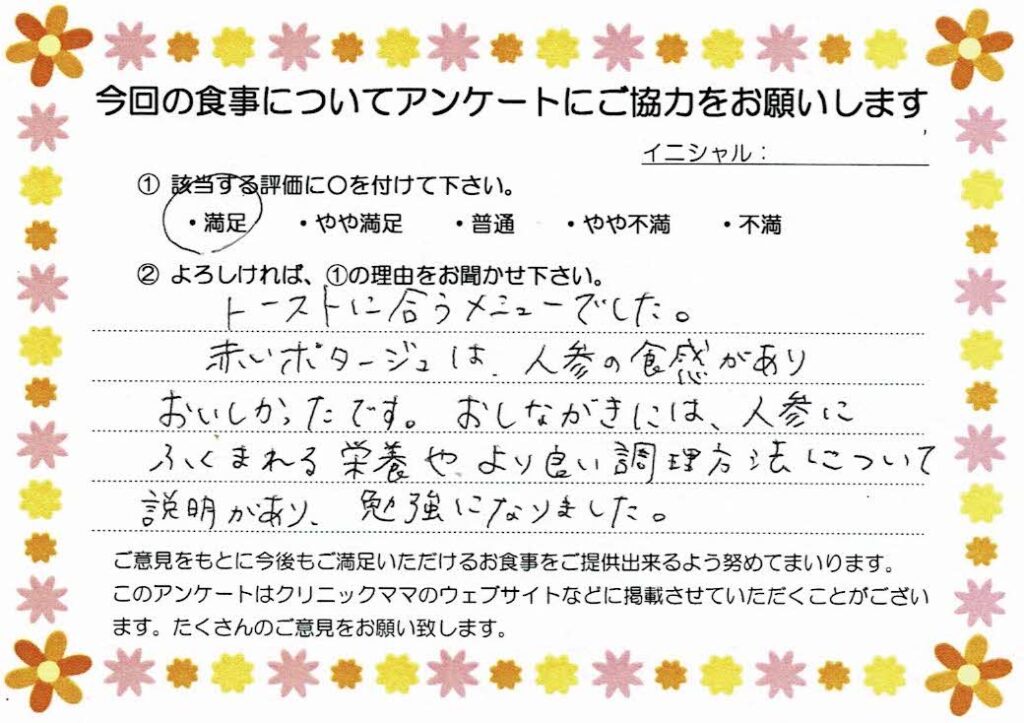 今回の食事についてアンケートにご協力をお願いします
イニシャル：
① 該当する評価に〇を付けて下さい。
・満足 ・やや満足 ・普通 ・やや不満 ・不満
② よろしければ、①の理由をお聞かせ下さい。
トーストに合うメニューでした。
赤いポタージュは、人参の食感があり
おいしかったです。おしながきには、人参に
ふくまれる栄養や、より良い調理方法について
説明があり、勉強になりました。
ご意見をもとに今後もご満足いただけるお食事をご提供出来るよう努めてまいります。
このアンケートはクリニックママのウェブサイトなどに掲載させていただくことがござい
ます。たくさんのご意見をお願い致します。